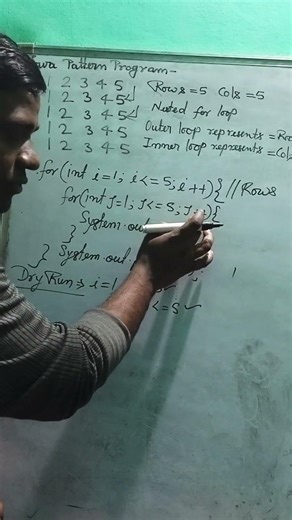 Java Pattern Program-
1 2 3 4 5
1 2 3 4 5
1 2 3 4 5
1 2 3 4 5
2 3 4 5
Rows=5 Cols=5
Nested for loop
Outer loop represents =
Inner loop represents =
for(int i=1; i<=5; i++){ //Rows
for(int J=1; J<=5; J++){
System.out
}
} System.out.
Dry Run => i=1
<=5 ✓